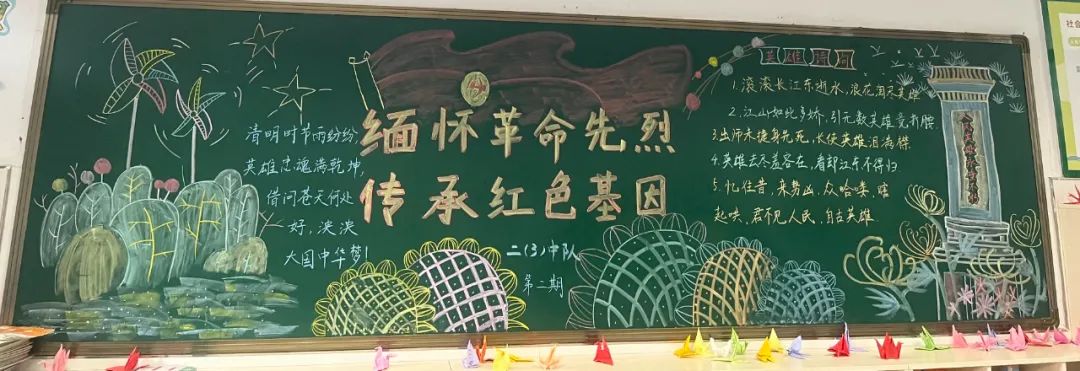 清明时节雨纷纷,
英雄忠魂满乾坤,
借问苍天何处
好,泱泱
大国中华梦!
缅怀革命先烈
传承红色基因
二(3)中队
第二期
英雄诗词
1.滚滚长江东逝水,浪花淘尽英雄
2.江山如此多娇,引无数英雄竞折腰.
3.出师未捷身先死,长使英雄泪满襟
4.英雄去尽羞容在,看却江东不得归
5.忆往昔,来剪凶,众哈喽,瞎
起哄,君不见人民,自古英雄
社会